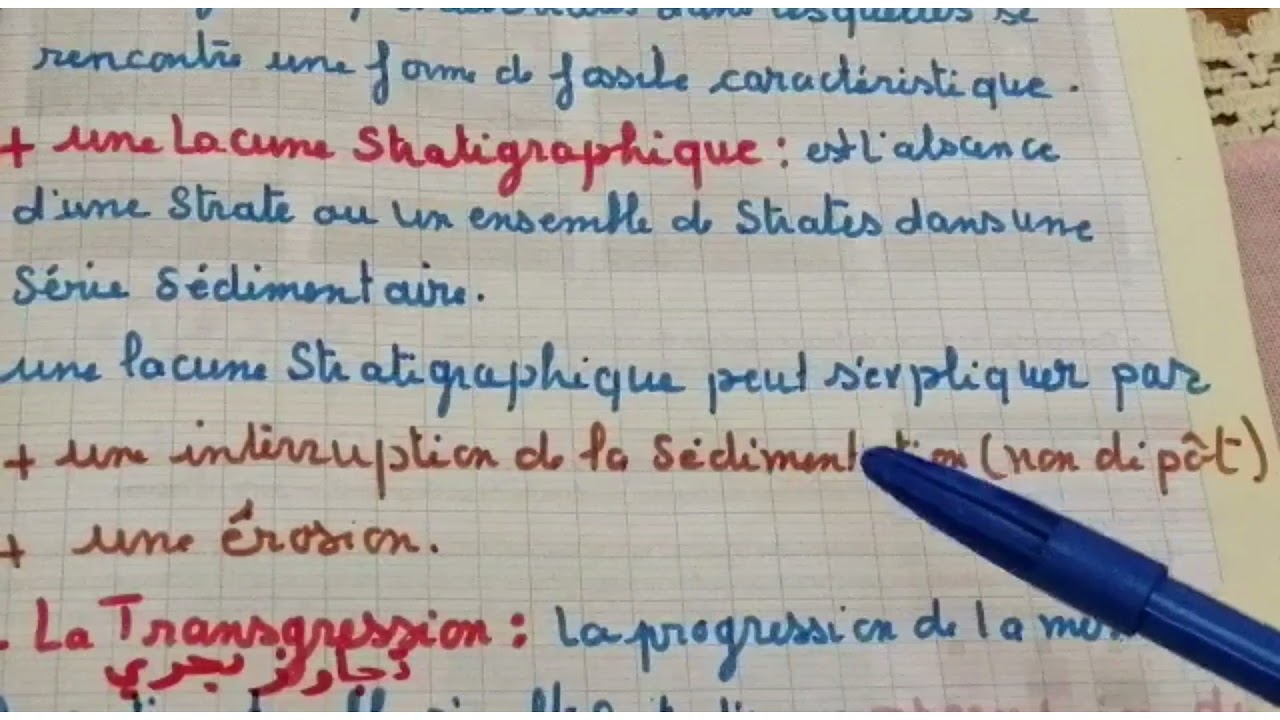 dans lesquelles se
rencontre une forme de fossile caractéristique.
+ une Lacune Stratigraphique : est l'absence
d'une Strate ou un ensemble de Strates dans une
Série Sédimentaire.
une lacune Stratigraphique peut s'expliquer par
+ une interruption de la Sédimentation (non dépôt)
+ une érosion.
. La Transgression : la progression de la mer
تجاوز بحري